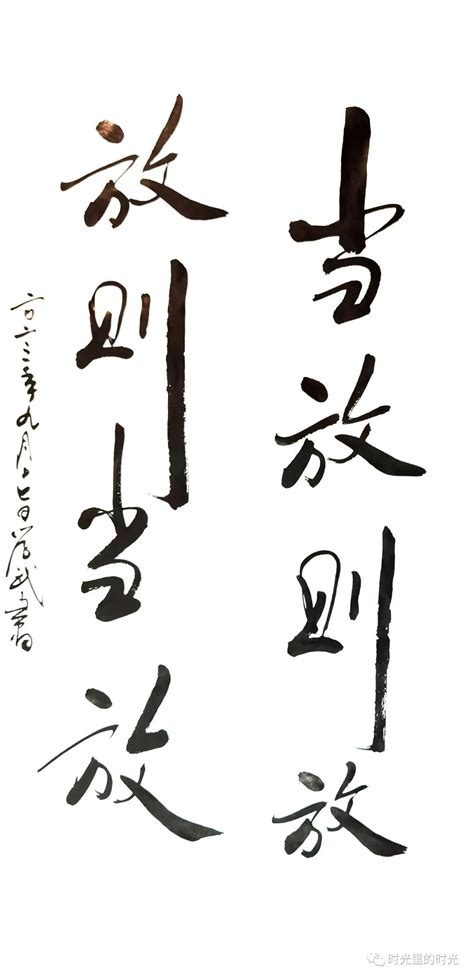 当放则放
放则当放
二〇二三年九月十七日学武
时光里的时光